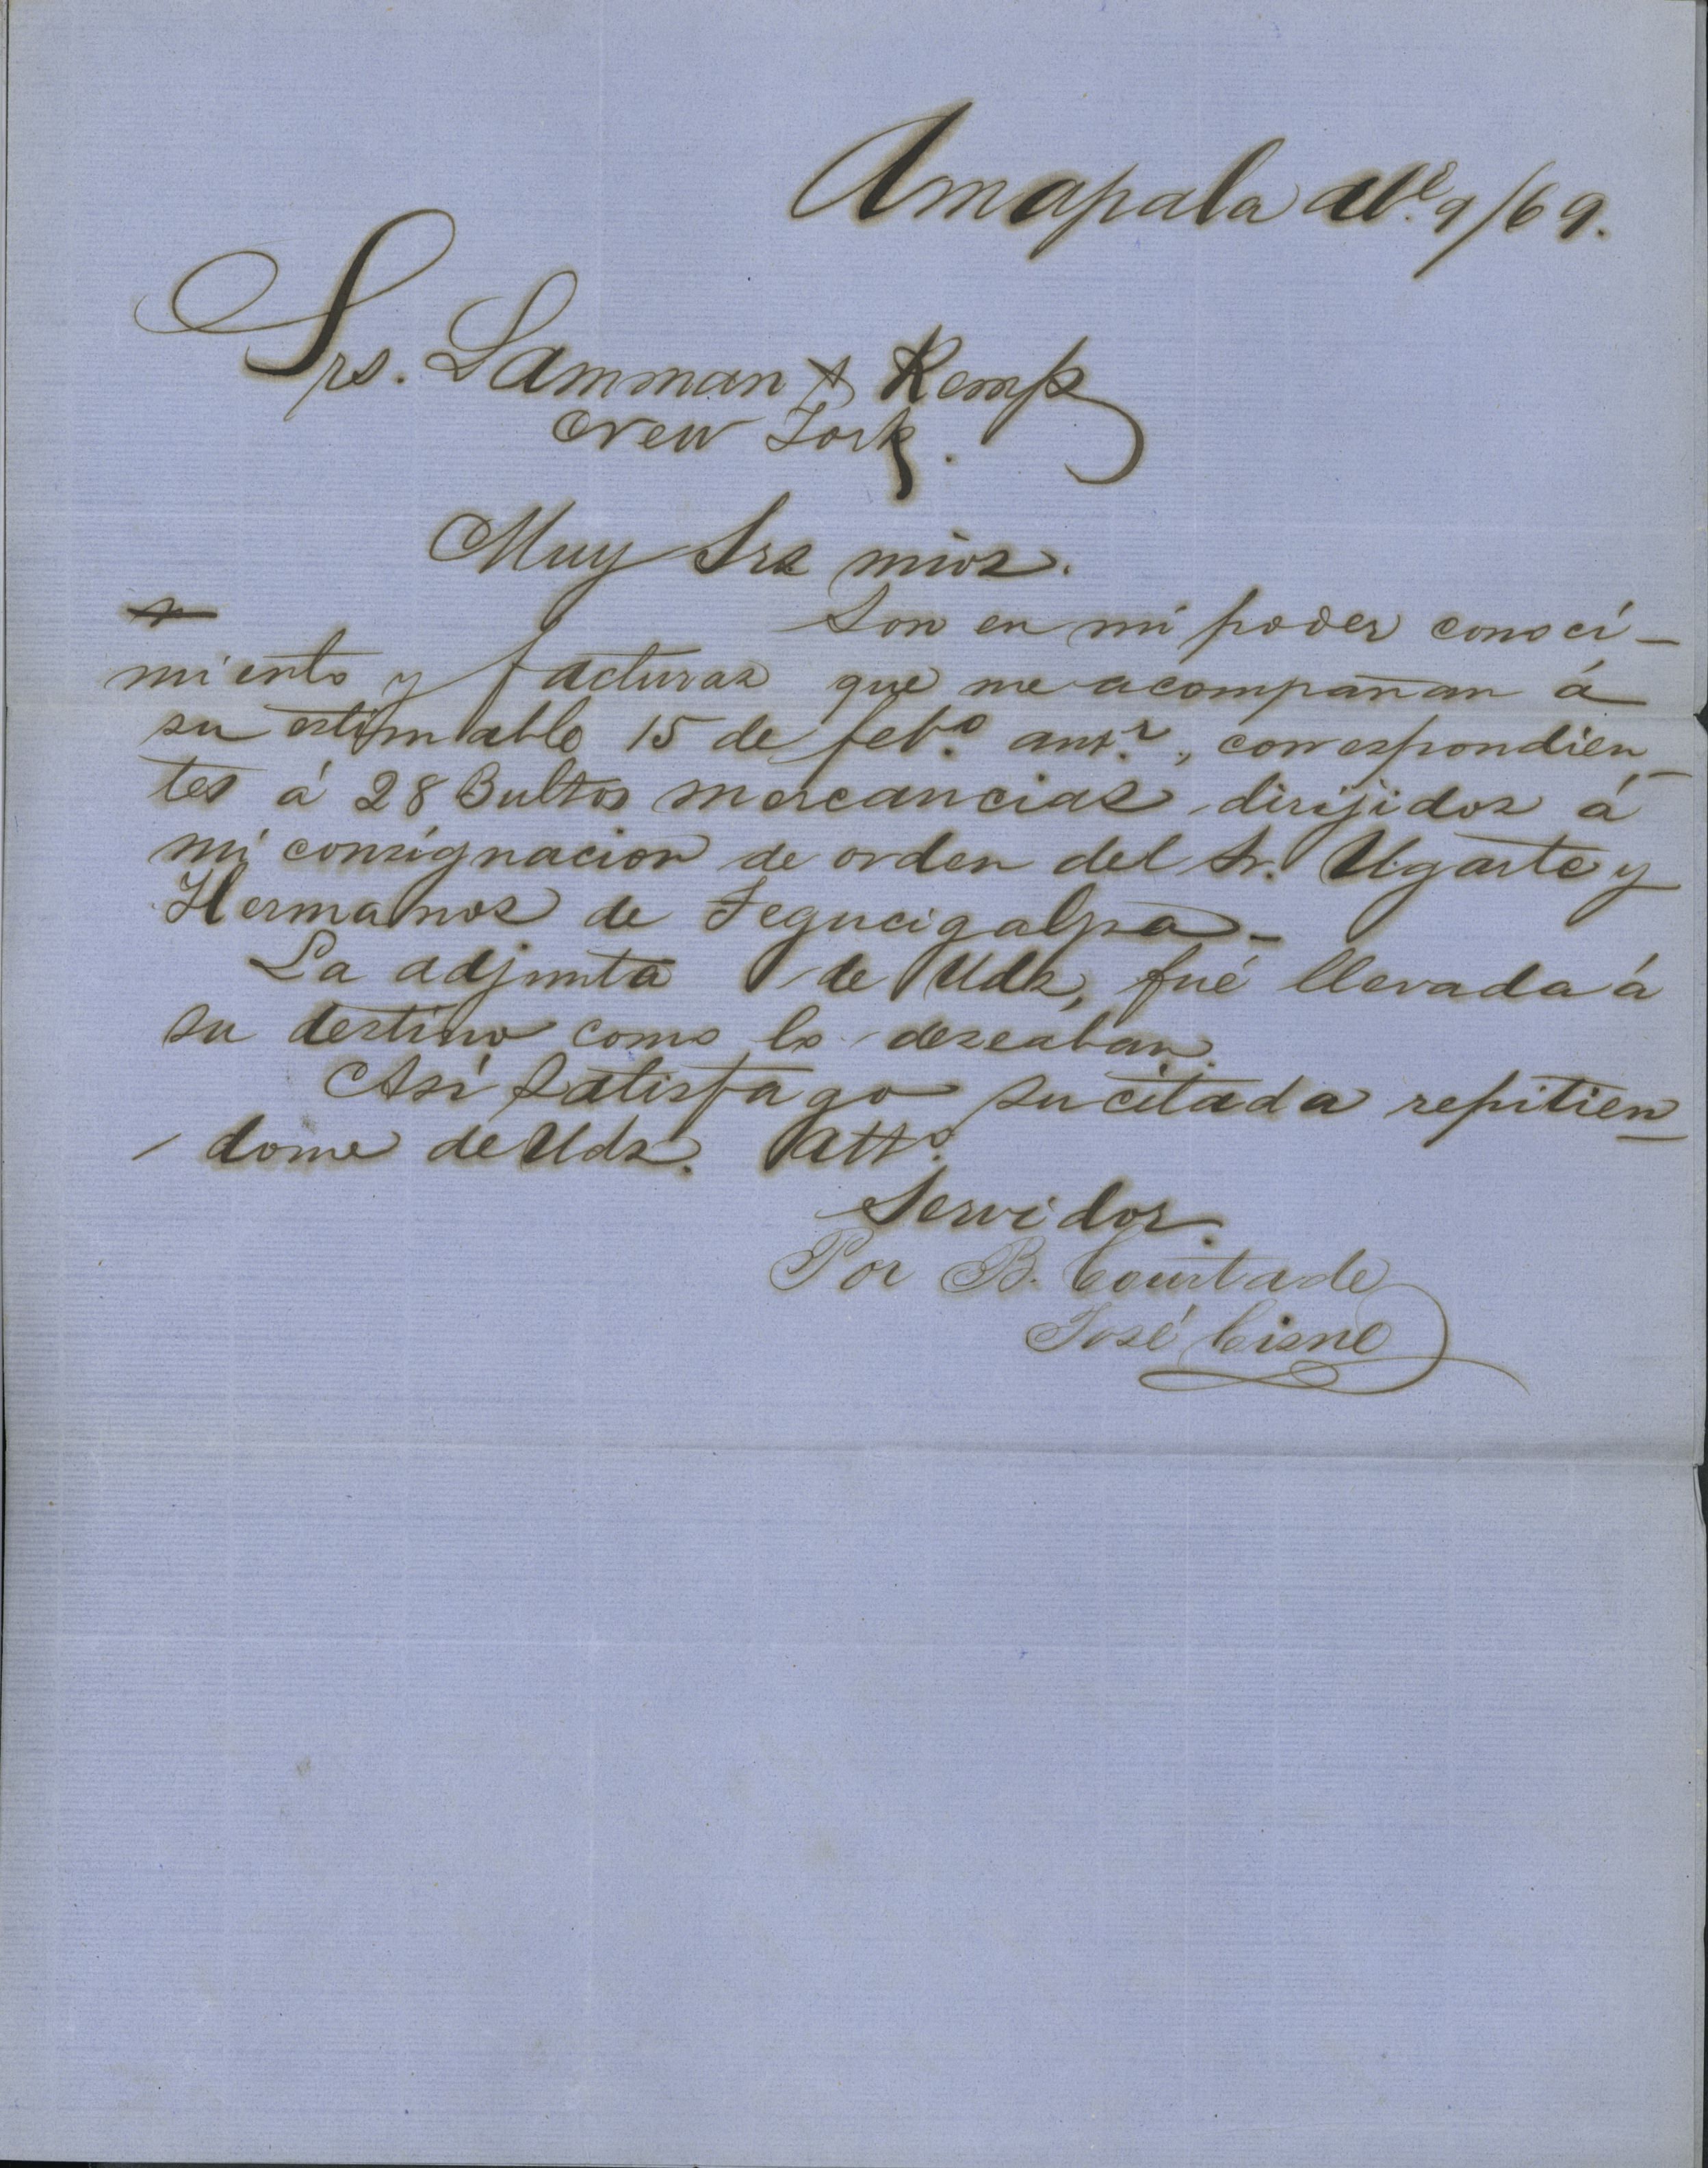 Amapala Abl. 9/69.
Srs. Lamman & Kemp
New York.
Muy Srs mios.
Son en mi poder conoci-
miento y facturas que me acompañan á
su estimable 15 de febo. antr., correspondien-
tes á 28 Bultos mercancias dirijidos á
mi consignacion de orden del Sr. Ugarte y
Hermanos de Tegucigalpa-
La adjunta de Uds, fué llevada á
su destino como lo deseaban.
Asi satisfago su citada repitien-
dome de Uds. Atto.
Servidor.
Por B. Courtade
José Cisne